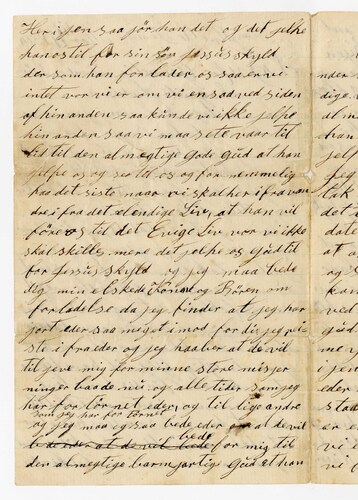 Her igjen saa gør han det og det jelpe
han os til for sin søn jessus skyld
der som han for lader os saa er vi
intet vor vi er om vi en sad ved siden
af hin anden saa kunde vi ikke jelpe
hin anden saa vi maa sete vaar til
tid til den almegtige gode Gud at han
jelpe os og ser til os og for nemmelig
paa det siste naar vi skal her ifra van
dre ifra det elendige Liv, at han vil
føre os til det Evige Liv vor vi ikke
skal skilles mere det jelpe os Gud til
for Jessus skyld og jeg maa bede
dig min elskede Kone og Børen om
forladelse da jeg finder at jeg har
gort eder saa meget imod for di jeg rei
ste i fra eder og jeg haaber at de vil
til jeve mig for minne store misjer
ninger baade nu og alle tider som jeg
har for tørnet eder og til lige andre
som jeg har for tørnet
og jeg maa og saa bede eder at de vil
bede eder at de vil bede bede for mig til
den almegtige barmjartige Gud at han
nder
dige
at
jelp
Jeg
tak
det
date
at
og
kan
ved
god
en
me
i jen
eder
staa
er
vi